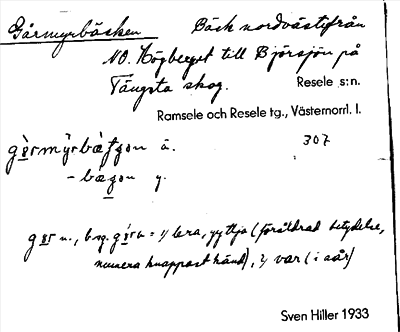 Gårmyrbäcken Bäck nordväst från
NO. Högberget till Björsjön på
Tängsta skog. Resele s:n.
Ramsele och Resele tg., Västernorrl. l.
307
ä.
y.
n., = 1) lera, gyttja (föråldrad betydelse,
numera knappast känd), 2) var (i sår)
Sven Hiller 1933